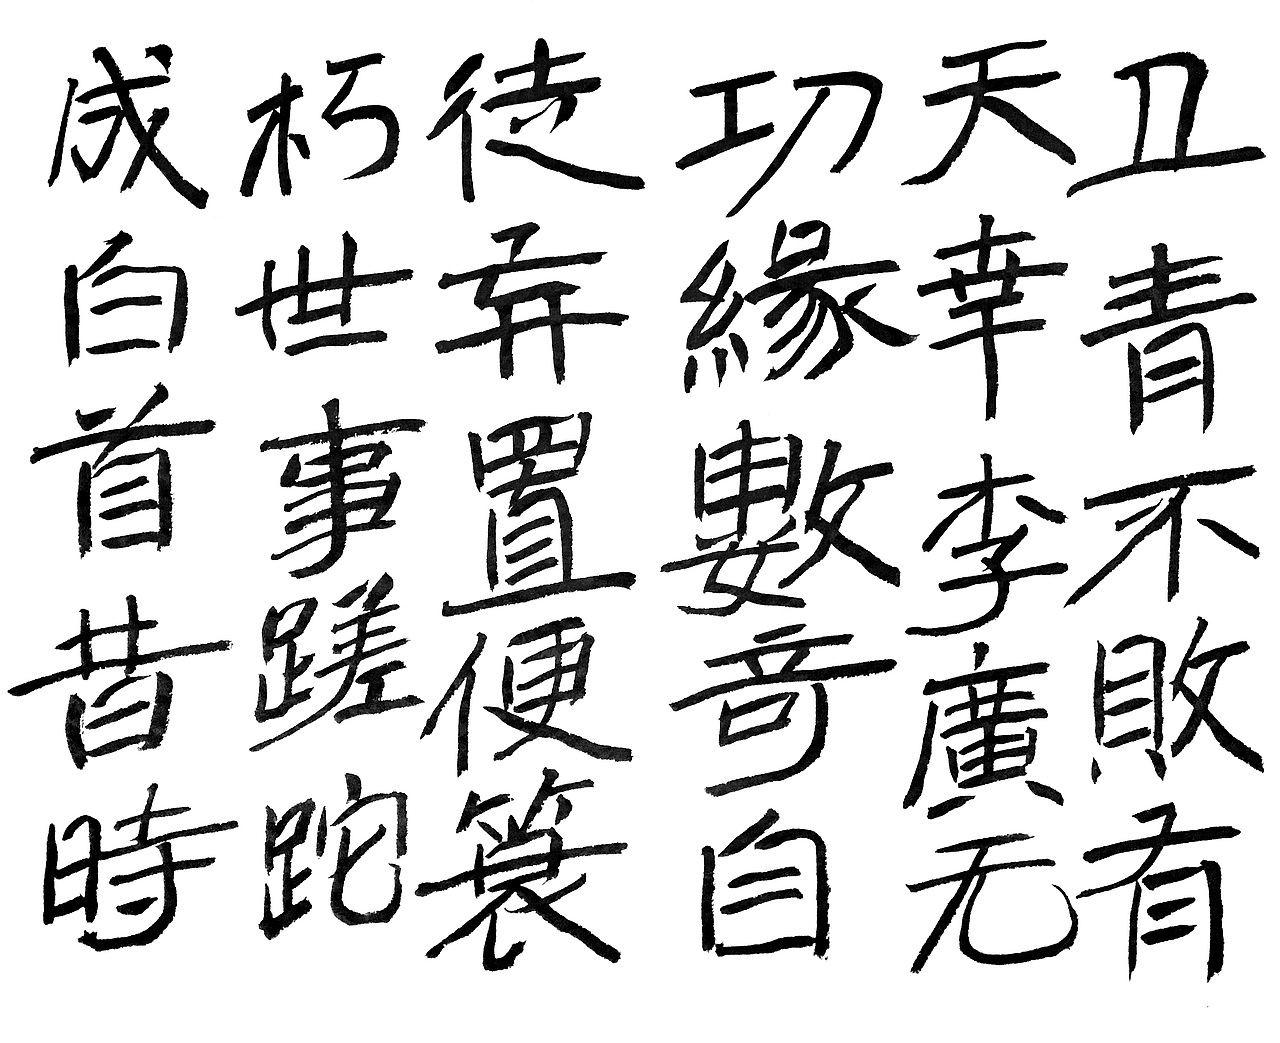 卫青不敗有
天幸李廣无
功緣數竒自
徒弃置便簑
朽世事蹉跎
成白首昔時